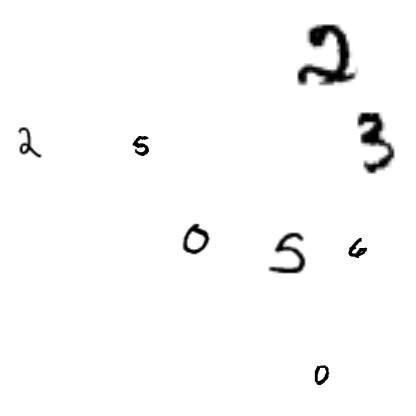 2
2 5 3
0 5 6
0